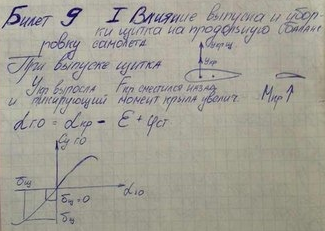 Билет 9 I Влияние выпуска и убор-
ки щитка на продольную баланс
ровку самолета
При выпуске щитка
Yкр выросла Fкр сместился назад
и пикирующий момент крыла увелич.
Yкр
Mкр↑
αго = αкр - ε + φст
Cy го
δщ
δщ = 0
αго
δщ